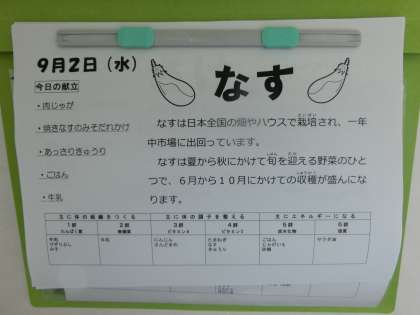 9月2日（水）
なす
今日の献立
・肉じゃが
・焼きなすのみそだれかけ
・あっさりきゅうり
・ごはん
・牛乳
なすは日本全国の畑やハウスで栽培され、一年
中市場に出回っています。
なすは夏から秋にかけて旬を迎える野菜のひと
つで、6月から10月にかけての収穫が盛んにな
ります。
主に体の組織をつくる 主に体の調子を整える 主にエネルギーになる
1群 2群 3群 4群 5群 6群
たんぱく質 無機質 ビタミンA ビタミンC 炭水化物 脂質
牛肉 牛乳 にんじん たまねぎ ごはん サラダ油
さんどまめ なす じゃがいも
みそ きゅうり 砂糖